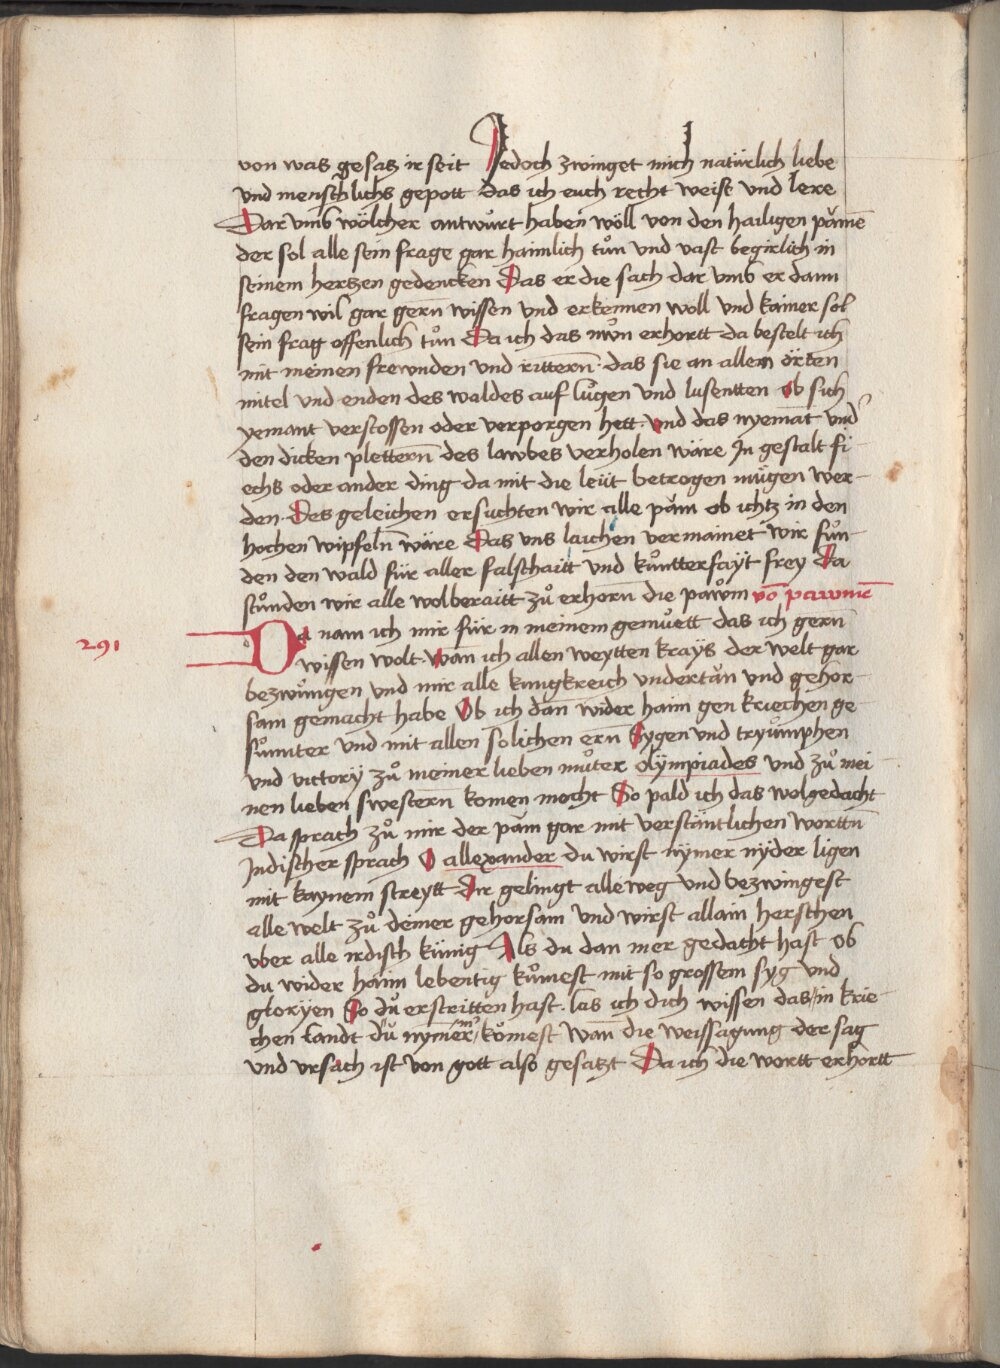 von was gesatz ir seit Jedoch zwinget mich natürlich liebe
und menschlichs gepott das ich euch recht weist und lere
Dar umb wölcher antwůrt haben wöll von den hailigen pämē
der sol alle sein frage gar haimlich tůn und vast begirlich in
seinem hertzen gedencken Das er die sach dar umb er dann
fragen wil gar gern wissen und erkennen woll und kainer sol
sein frag offenlich tůn Da ich das nůn erhortt da bestelt ich
mit meinen frewnden und rittern̄ · das sie an allem örtten
mitel und enden des waldes auf lůgen und lusentten ob sich
yemant verstossen oder verporgen hett · und das nyemāt und̾
den dicken plettern̄ des lawbes verholen wäre In gestalt fi-
echs oder ander ding da mit die leüt betrogen mügen wer-
den · Des geleichen ersuchten wir alle päm ob ichtz in den
hochen wipfeln̄ wäre Das uns laichen vermainet wir fůn-
den den wald für aller falschaitt und kůntterfaÿt frey Da
stůnden wir alle wolberaitt zů erhorn̄ die paẘm vō pawmē
291
Da nam ich mir für in meinem gemüett das ich gern̄
wissen wolt · wan ich allen weytten kraÿs der welt gar
bezwůngen und mir alle kungkreich undertän und gehor-
sam gemacht habe Ob ich dan̄ wider haim gen kriechen ge-
sůnnter und mit allen solichen ern̄ Sygen und tryůmphen
und victorÿ zů meiner lieben můter olÿmpiades und zů mei-
nen lieben swestern̄ komen mocht So pald ich das wolgedacht
Da sprach zů mir der päm gar mit verstäntlichen worttn̄
Jndischer sprach O allexander du wirst nÿmer nÿder ligen
mit kaynem streytt Dir gelingt alleweg und bezwingest
alle welt zů deiner gehorsam und wirst allain herschen
uber alle irdisch künig Als du dan mer gedacht hast Ob
du wider haim lebentig kůmest mit so grossem syg und
glorÿen So dů erstritten hast · las ich dich wissen das in krie-
chen landt du nymer m̄ kömest wan̄ die weissagung der sag
und ursach ist von gott also gesatzt Da ich die wortt erhortt